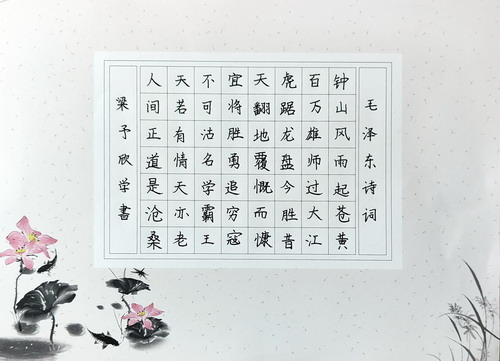 毛泽东诗词
钟山风雨起苍黄
百万雄师过大江
虎踞龙盘今胜昔
天翻地覆慨而慷
宜将胜勇追穷寇
不可沽名学霸王
天若有情天亦老
人间正道是沧桑
梁予欣学書